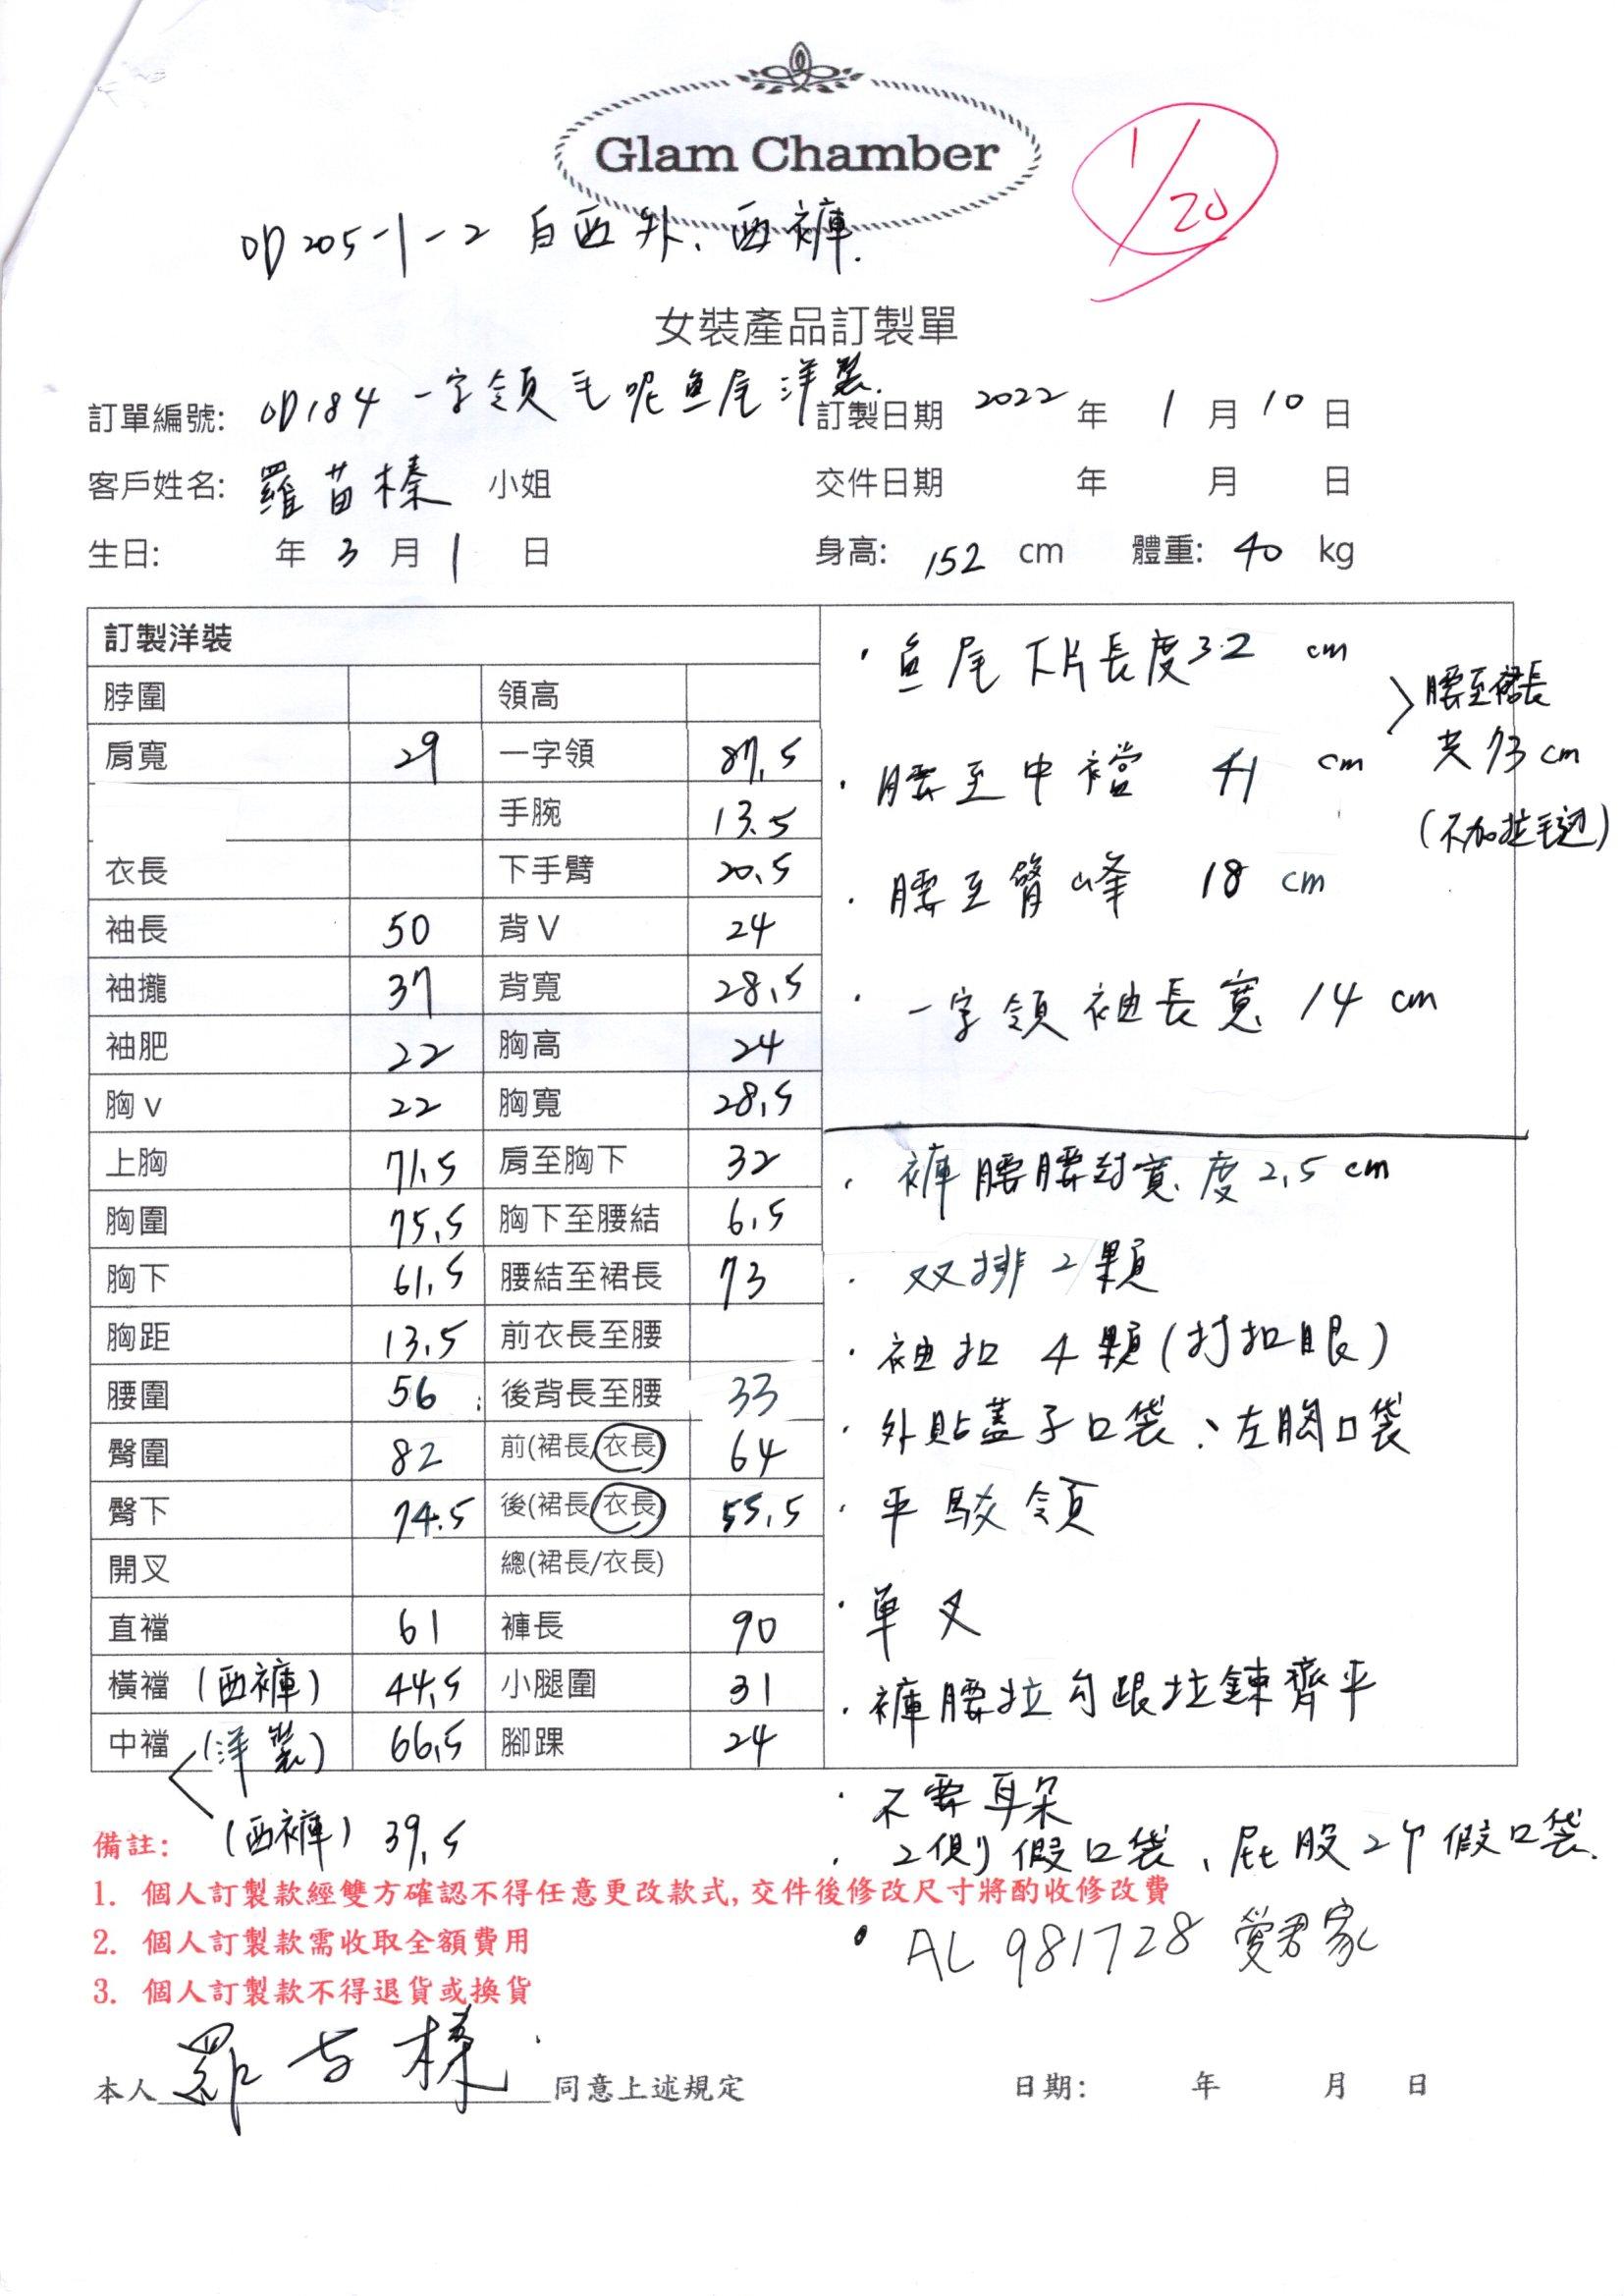 Glam Chamber
1/20
OD205-1-2 白西外、西褲.
女裝產品訂製單
訂單編號: OD184 一字領毛呢魚尾洋裝. 訂製日期 2022 年 1 月 10 日
客戶姓名: 羅苗榛 小姐 交件日期 年 月 日
生日: 年 3 月 1 日 身高: 152 cm 體重: 40 kg
訂製洋裝
脖圍 領高
肩寬 29 一字領 87.5
手腕 13.5
衣長 下手臂 20.5
袖長 50 背V 24
袖攏 37 背寬 28.5
袖肥 22 胸高 24
胸v 22 胸寬 28.5
上胸 71.5 肩至胸下 32
胸圍 75.5 胸下至腰結 6.5
胸下 61.5 腰結至裙長 73
胸距 13.5 前衣長至腰
腰圍 56 後背長至腰 33
臀圍 82 前(裙長/衣長) 64
臀下 74.5 後(裙長/衣長) 55.5
開叉 總(裙長/衣長)
直襠 61 褲長 90
橫襠 (西褲) 44.5 小腿圍 31
中襠 (洋裝) 66.5 腳踝 24
(西褲) 39.5
・魚尾下片長度32 cm
・腰至中襠 41 cm
腰至裙長
共73cm
(不加拉毛边)
・腰至臀峰 18 cm
・一字領袖長寬 14 cm
・褲腰腰封寬度2.5 cm
・双排2顆
・袖扣4顆(打扣眼)
・外貼蓋子口袋、左胸口袋
・平駁領
・單叉
・褲腰拉勾跟拉鍊齊平
・不要耳朵
・2側假口袋、屁股2个假口袋.
・AL981728 愛君家
備註:
1. 個人訂製款經雙方確認不得任意更改款式,交件後修改尺寸將酌收修改費
2. 個人訂製款需收取全額費用
3. 個人訂製款不得退貨或換貨
本人 羅苗榛 同意上述規定 日期: 年 月 日